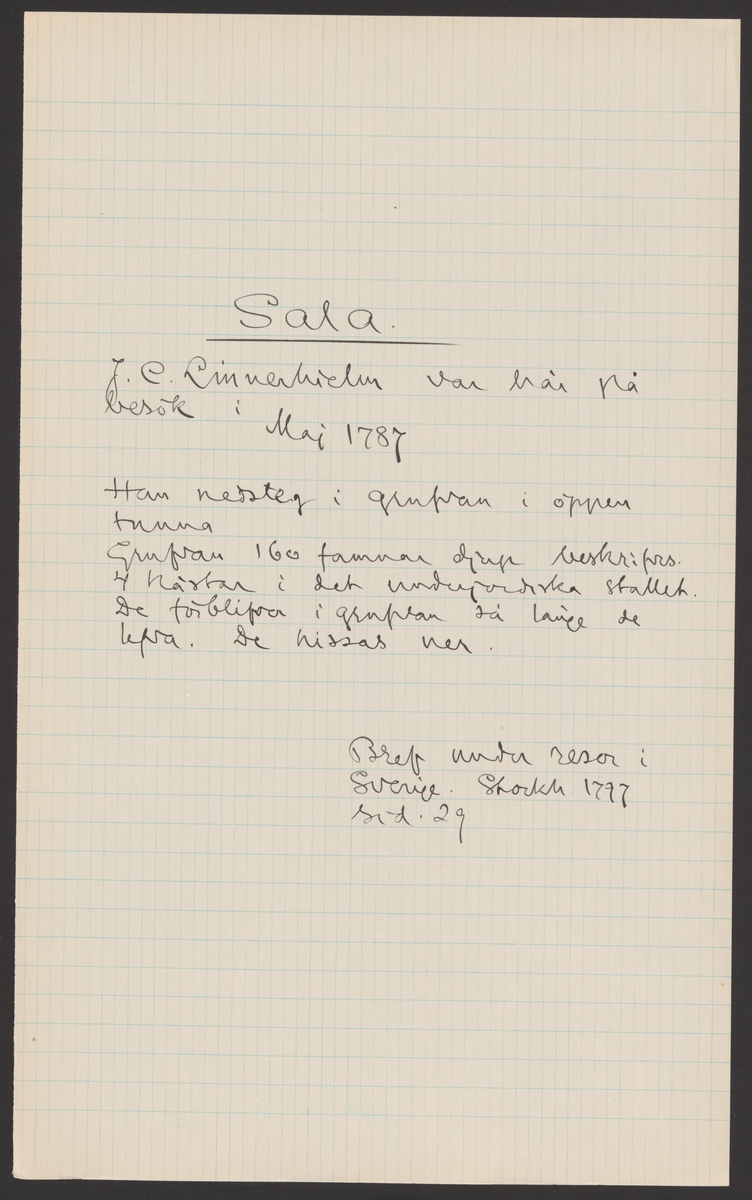 Sala.
J. C. Linnerhielm var här på
besök i
Maj 1787
Han nedsteg i grufvan i öppen
tunna
Grufvan 160 famnar djup beskrifvs.
4 hästar i det underjordiska stallet.
De förblifva i grufvan så länge de
lefva. De hissas ner.
Bref under resor i
Sverige. Stockh 1797
sid. 29